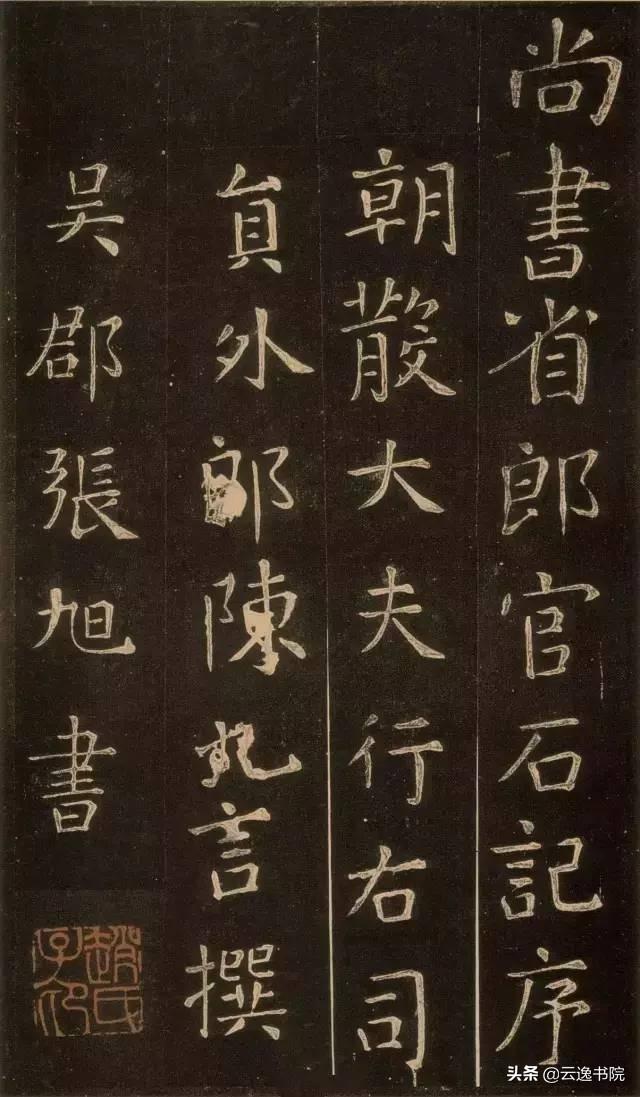 尚書省郎官石記序
朝散大夫行右司
員外郎陳九言撰
吳郡張旭書
趙氏子印
头条 @云逸书院